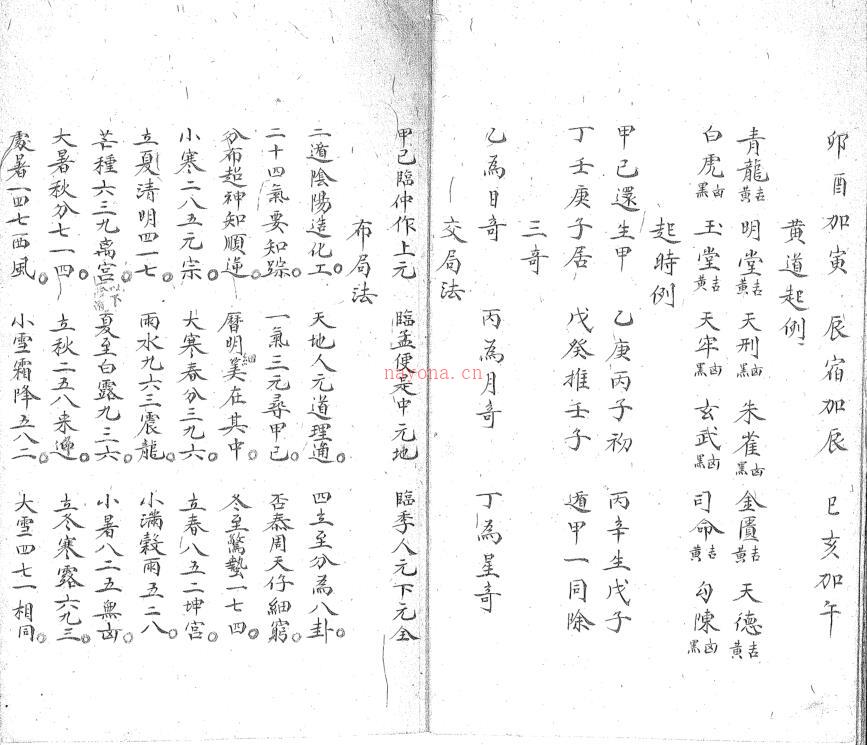 卯酉加寅 辰宿加辰 巳亥加午
黄道起例
青龍黄吉 明堂黄吉 天刑黑凶 朱雀黑凶 金匱黄吉 天德黄吉
白虎黑凶 玉堂黄吉 天牢黑凶 玄武黑凶 司命黄吉 勾陳黑凶
起時例
甲己還生甲 乙庚丙子初 丙辛生戊子
丁壬庚子居 戊癸推壬子 遁甲一同除
三奇
乙為日奇 丙為月奇 丁為星奇
交局法
甲己臨仲作上元 臨孟便是中元地 臨季人元下元全
布局法
二遁陰陽造化工 天地人元道理通 四立至分為八卦
二十四氣要知踪 一氣三元尋甲己 否泰周天仔細窮
分布超神知順逆 曆明細美在其中 冬至驚蟄一七四
小寒二八五元宗 大寒春分三九六 立春八五二坤宮
立夏清明四一七 雨水九六三震龍 小滿穀雨五二八
芒種六三九离宮以下 夏至白露九三六 小暑八二五無凶
大暑秋分七一四 立秋二五八來逢 立冬寒露六九三
處暑一四七西風 小雪霜降五八二 大雪四七一相同
nayona.cn